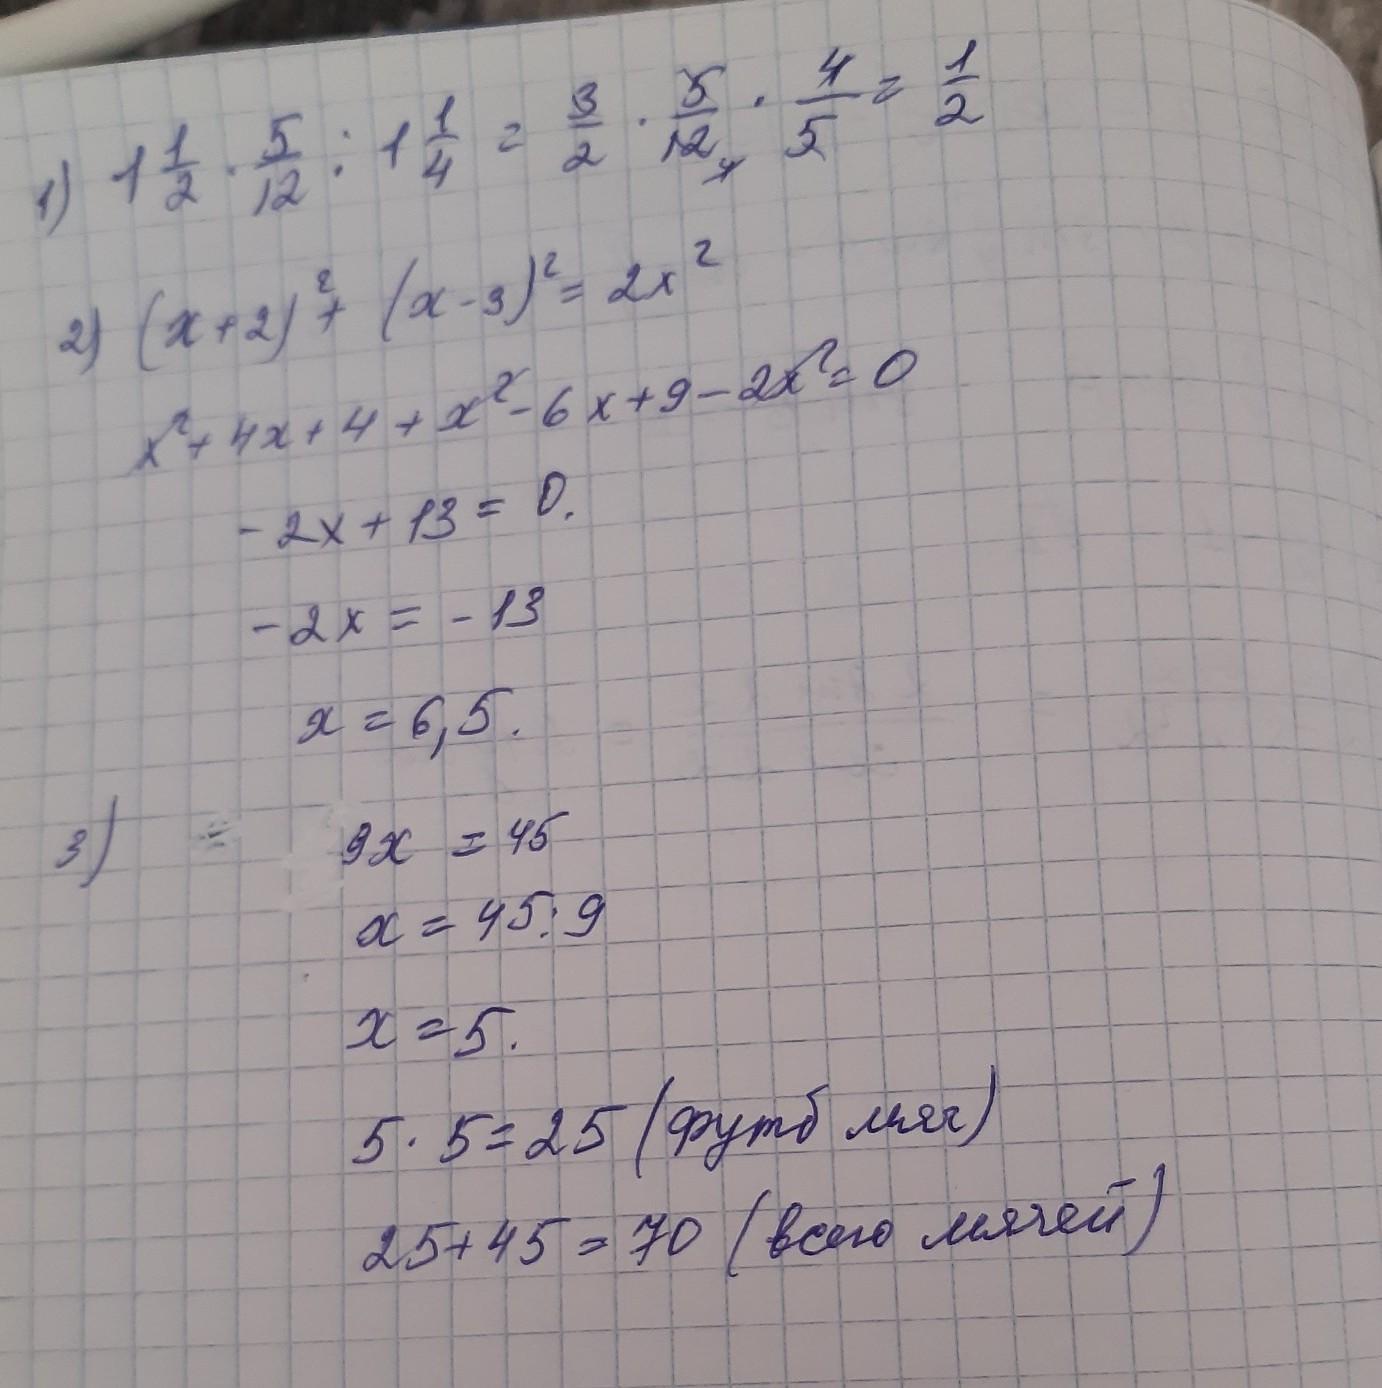 1) 1 1/2 · 5/12 : 1 1/4 = 3/2 · 5/12 · 4/5 = 1/2
2) (x+2)² + (x-3)² = 2x²
x² + 4x + 4 + x² - 6x + 9 - 2x² = 0
-2x + 13 = 0.
-2x = -13
x = 6,5.
3) 9x = 45
x = 45:9
x = 5.
5 · 5 = 25 (футб мяч)
25 + 45 = 70 (всего мячей)